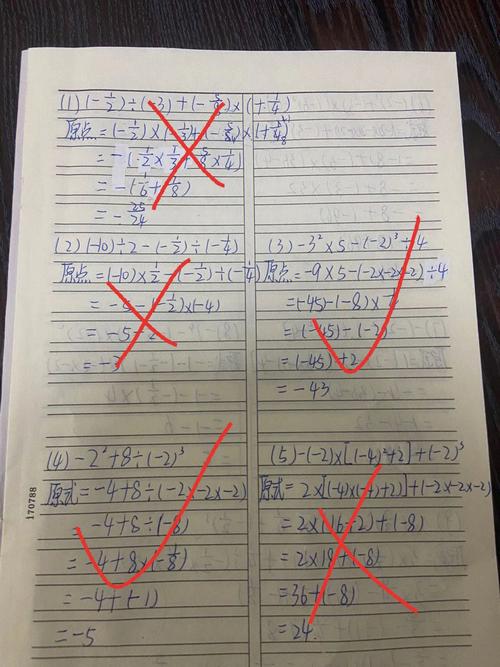 (1) (-1/2)÷(-3)+(-5/8)×(+1/4)
原点=(-1/2)×(-1/3)+(-5/8)×(+1/4)
=-(1/2×1/3+5/8×1/4)
=-(1/6+7/8)
=-25/24
(2) (-10)÷2-(-1/2)÷(-1/4)
原点=(-10)×1/2-(-1/2)÷(-1/4)
=-5-(-1/2)×(-4)
=-5-2
=-3
(3) -3²×5-(-2)³÷4
原点=-9×5-(-2×-2×-2)÷4
=(-45)-(-8)×
=(-45)-(-2)
=(-45)+2
=-43
(4) -2²+8÷(-2)³
原式=-4+8÷(-2×-2×-2)
-4+8÷(-8)
=-4+8×(-1/8)
=-4+(-1)
=-5
(5) -(-2)×[(-4)²+2]+(-2)³
原式=2×[(-4)×(-4)+2)]+(-2×-2×-2)
=2×(16+2)+(-8)
=2×18+(-8)
=36+(-8)
=24
170788